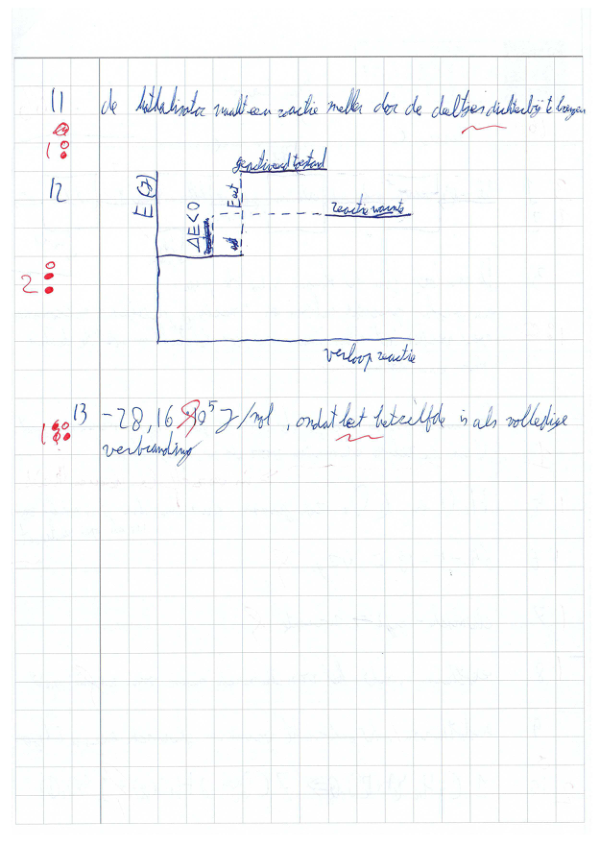 11 de kathalisator maakt een reactie sneller door de deeltjes dichterbij te brengen
1
12 E (J)
geactiveerd toestand
Eact
ΔE<0
reactiewarmte
2
verloop reactie
13 -28,16 · 10⁵ J/mol, omdat het hetzelfde is als volledige
1
verbranding